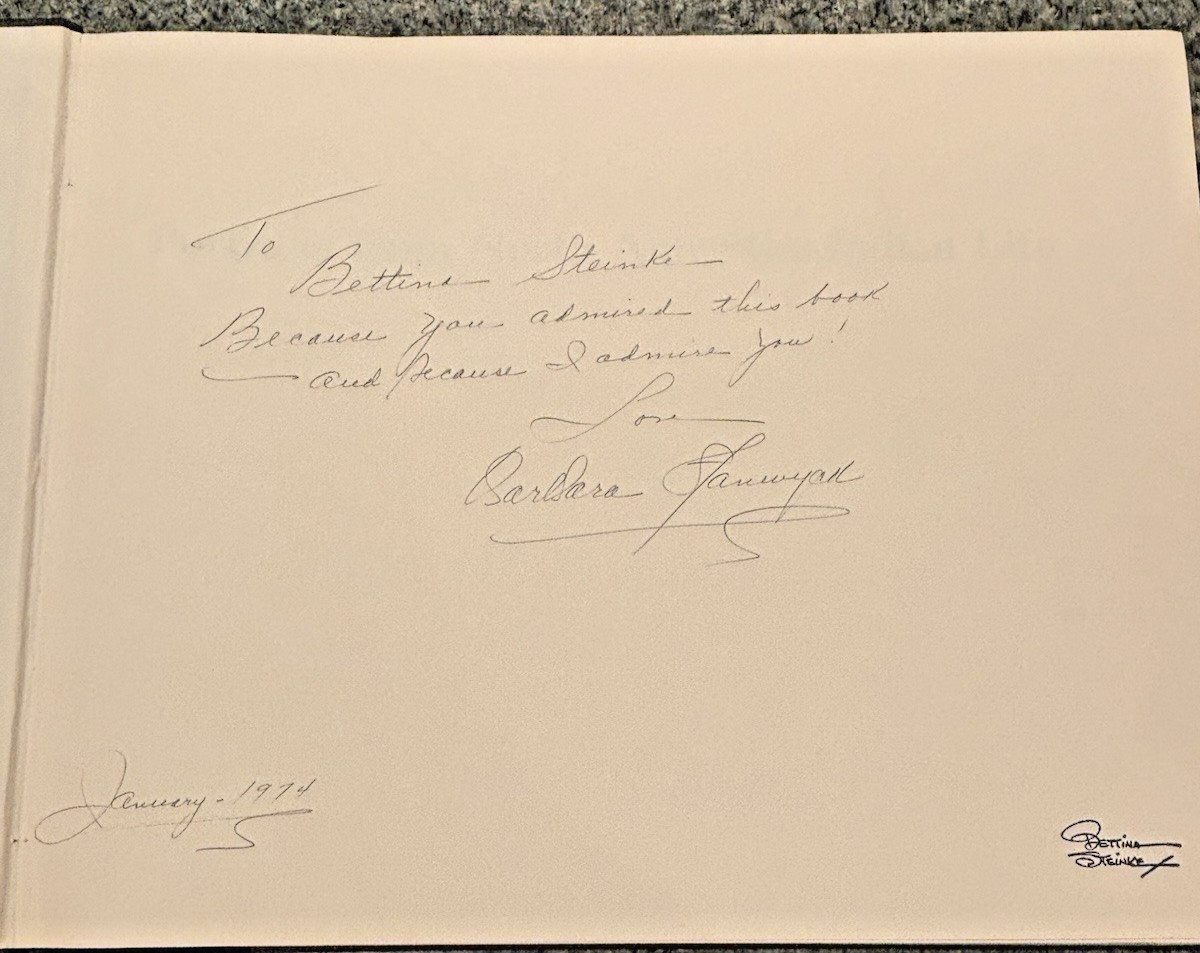 To
Bettina Steinke
Because you admired this book
and because I admire you!
Love
Barbara Stanwyck
January - 1974
Bettina
Steinke